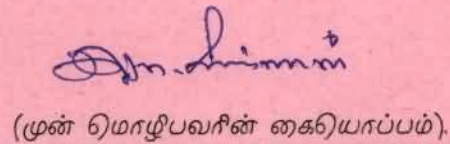 (முன் மொழிபவரின் கையொப்பம்).